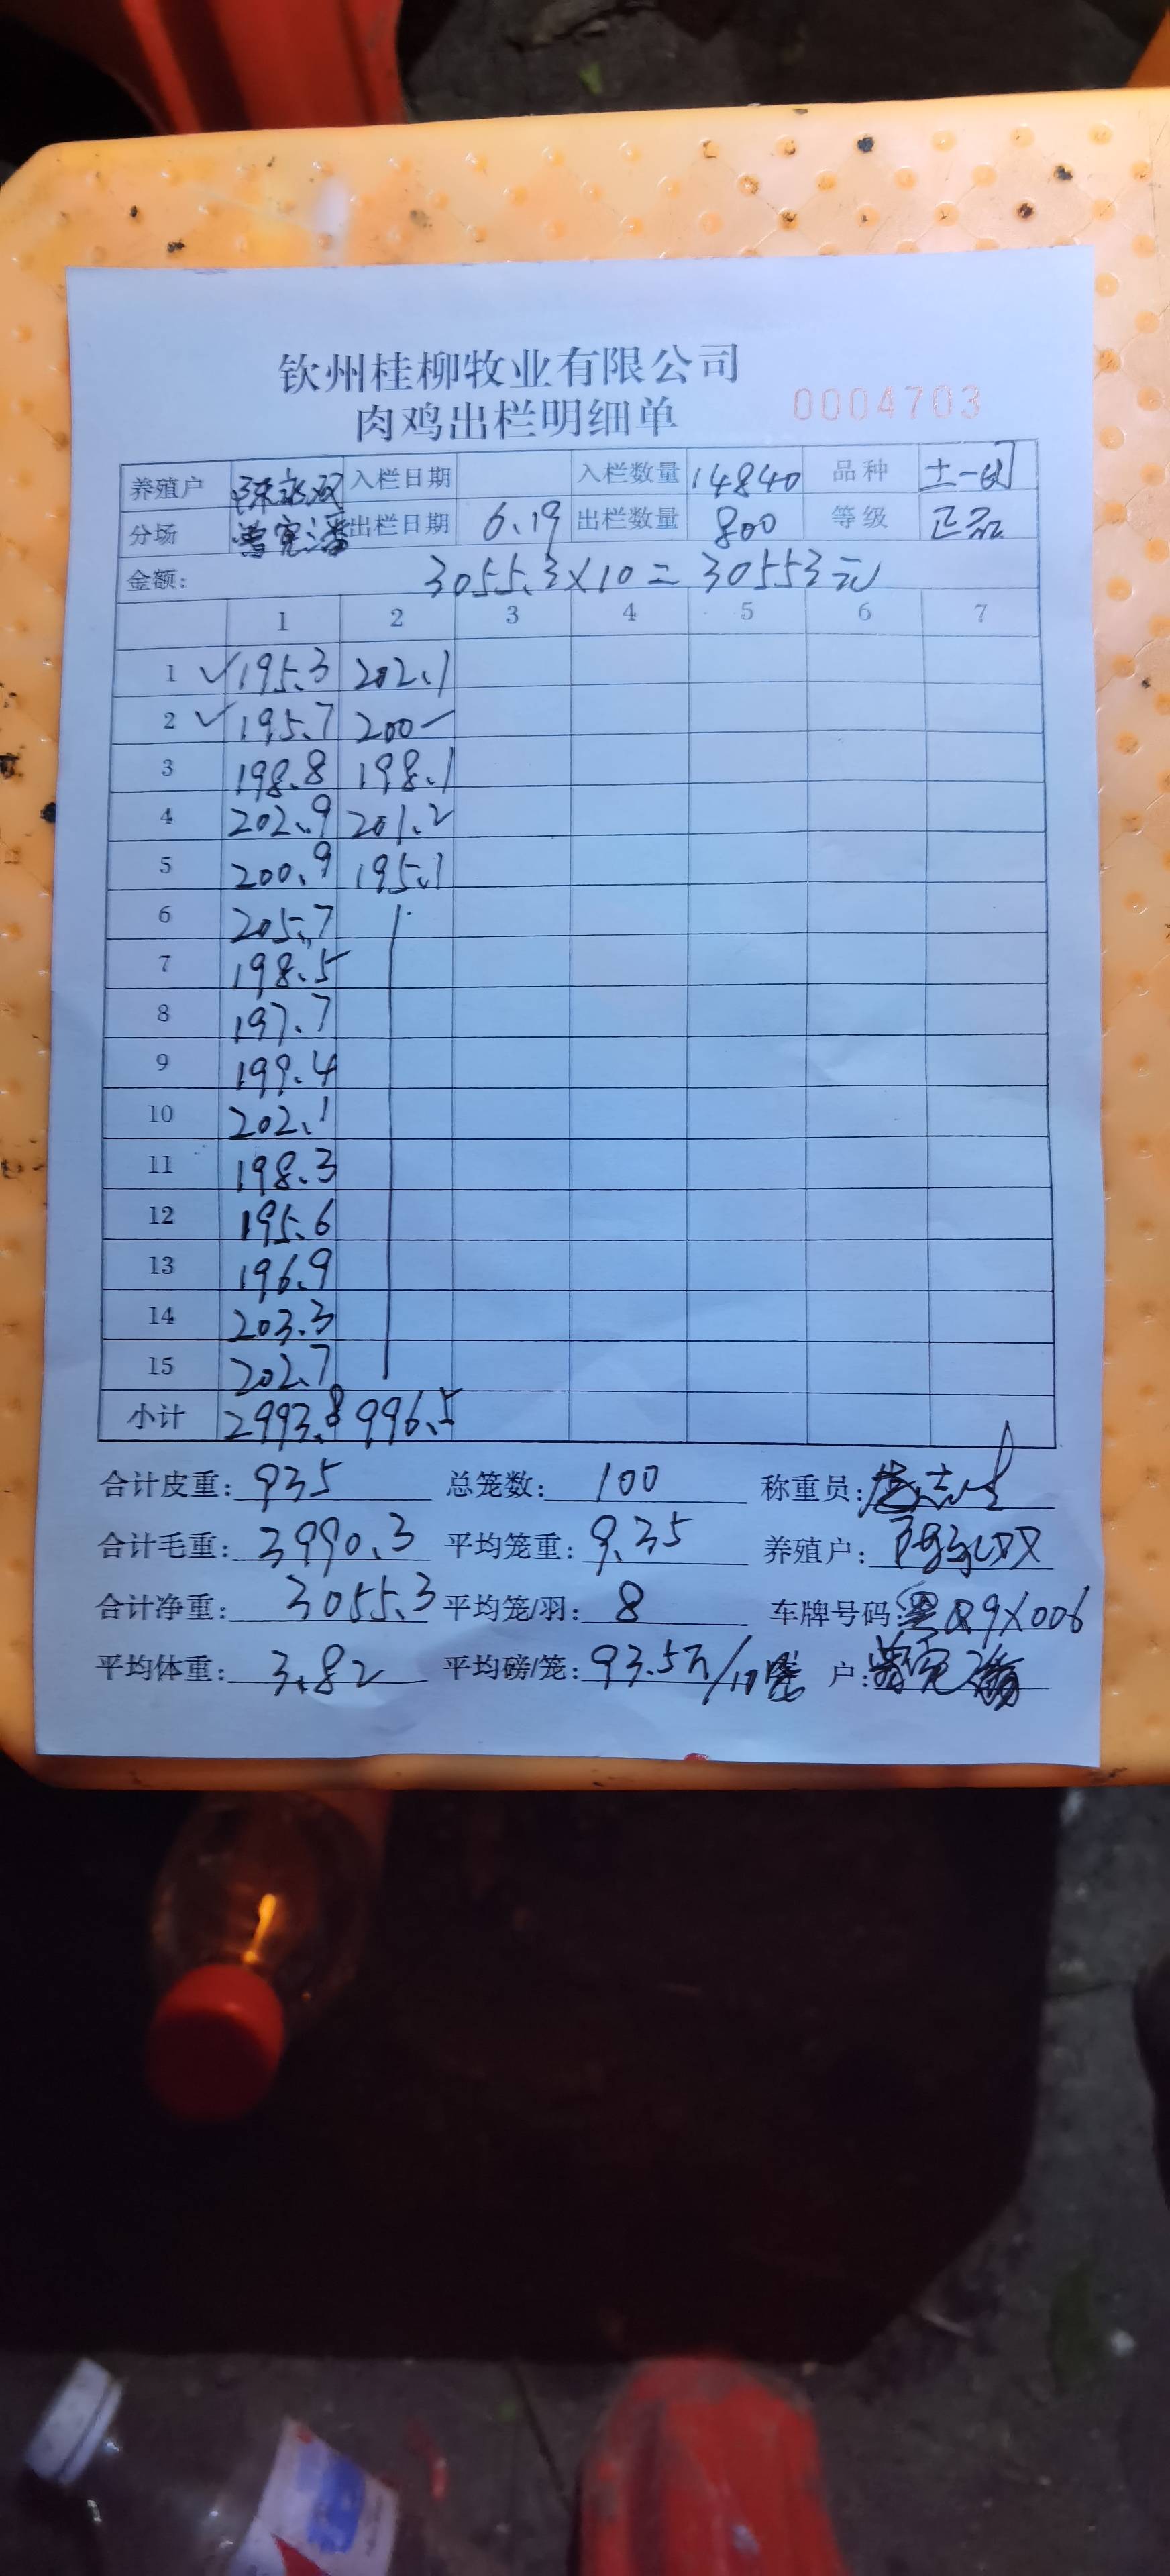 钦州桂柳牧业有限公司
肉鸡出栏明细单 0004703
养殖户 入栏日期 入栏数量 14840 品种 土一
分场 出栏日期 6.19 出栏数量 800 等级 正品
金额: 3055.3×10=30553元
1 2 3 4 5 6 7
1 ✓195.3 202.1
2 ✓195.7 200-
3 198.8 198.1
4 202.9 201.2
5 200.9 195.1
6 205.7
7 198.5
8 197.7
9 199.4
10 202.1
11 198.3
12 195.6
13 196.9
14 203.3
15 202.7
小计 2993.8 996.5
合计皮重: 935 总笼数: 100 称重员:
合计毛重: 3990.3 平均笼重: 9.35 养殖户:
合计净重: 3055.3 平均笼/羽: 8 车牌号码: 粤Q9X006
平均体重: 3.82 平均磅/笼: 93.5斤/10笼 户: